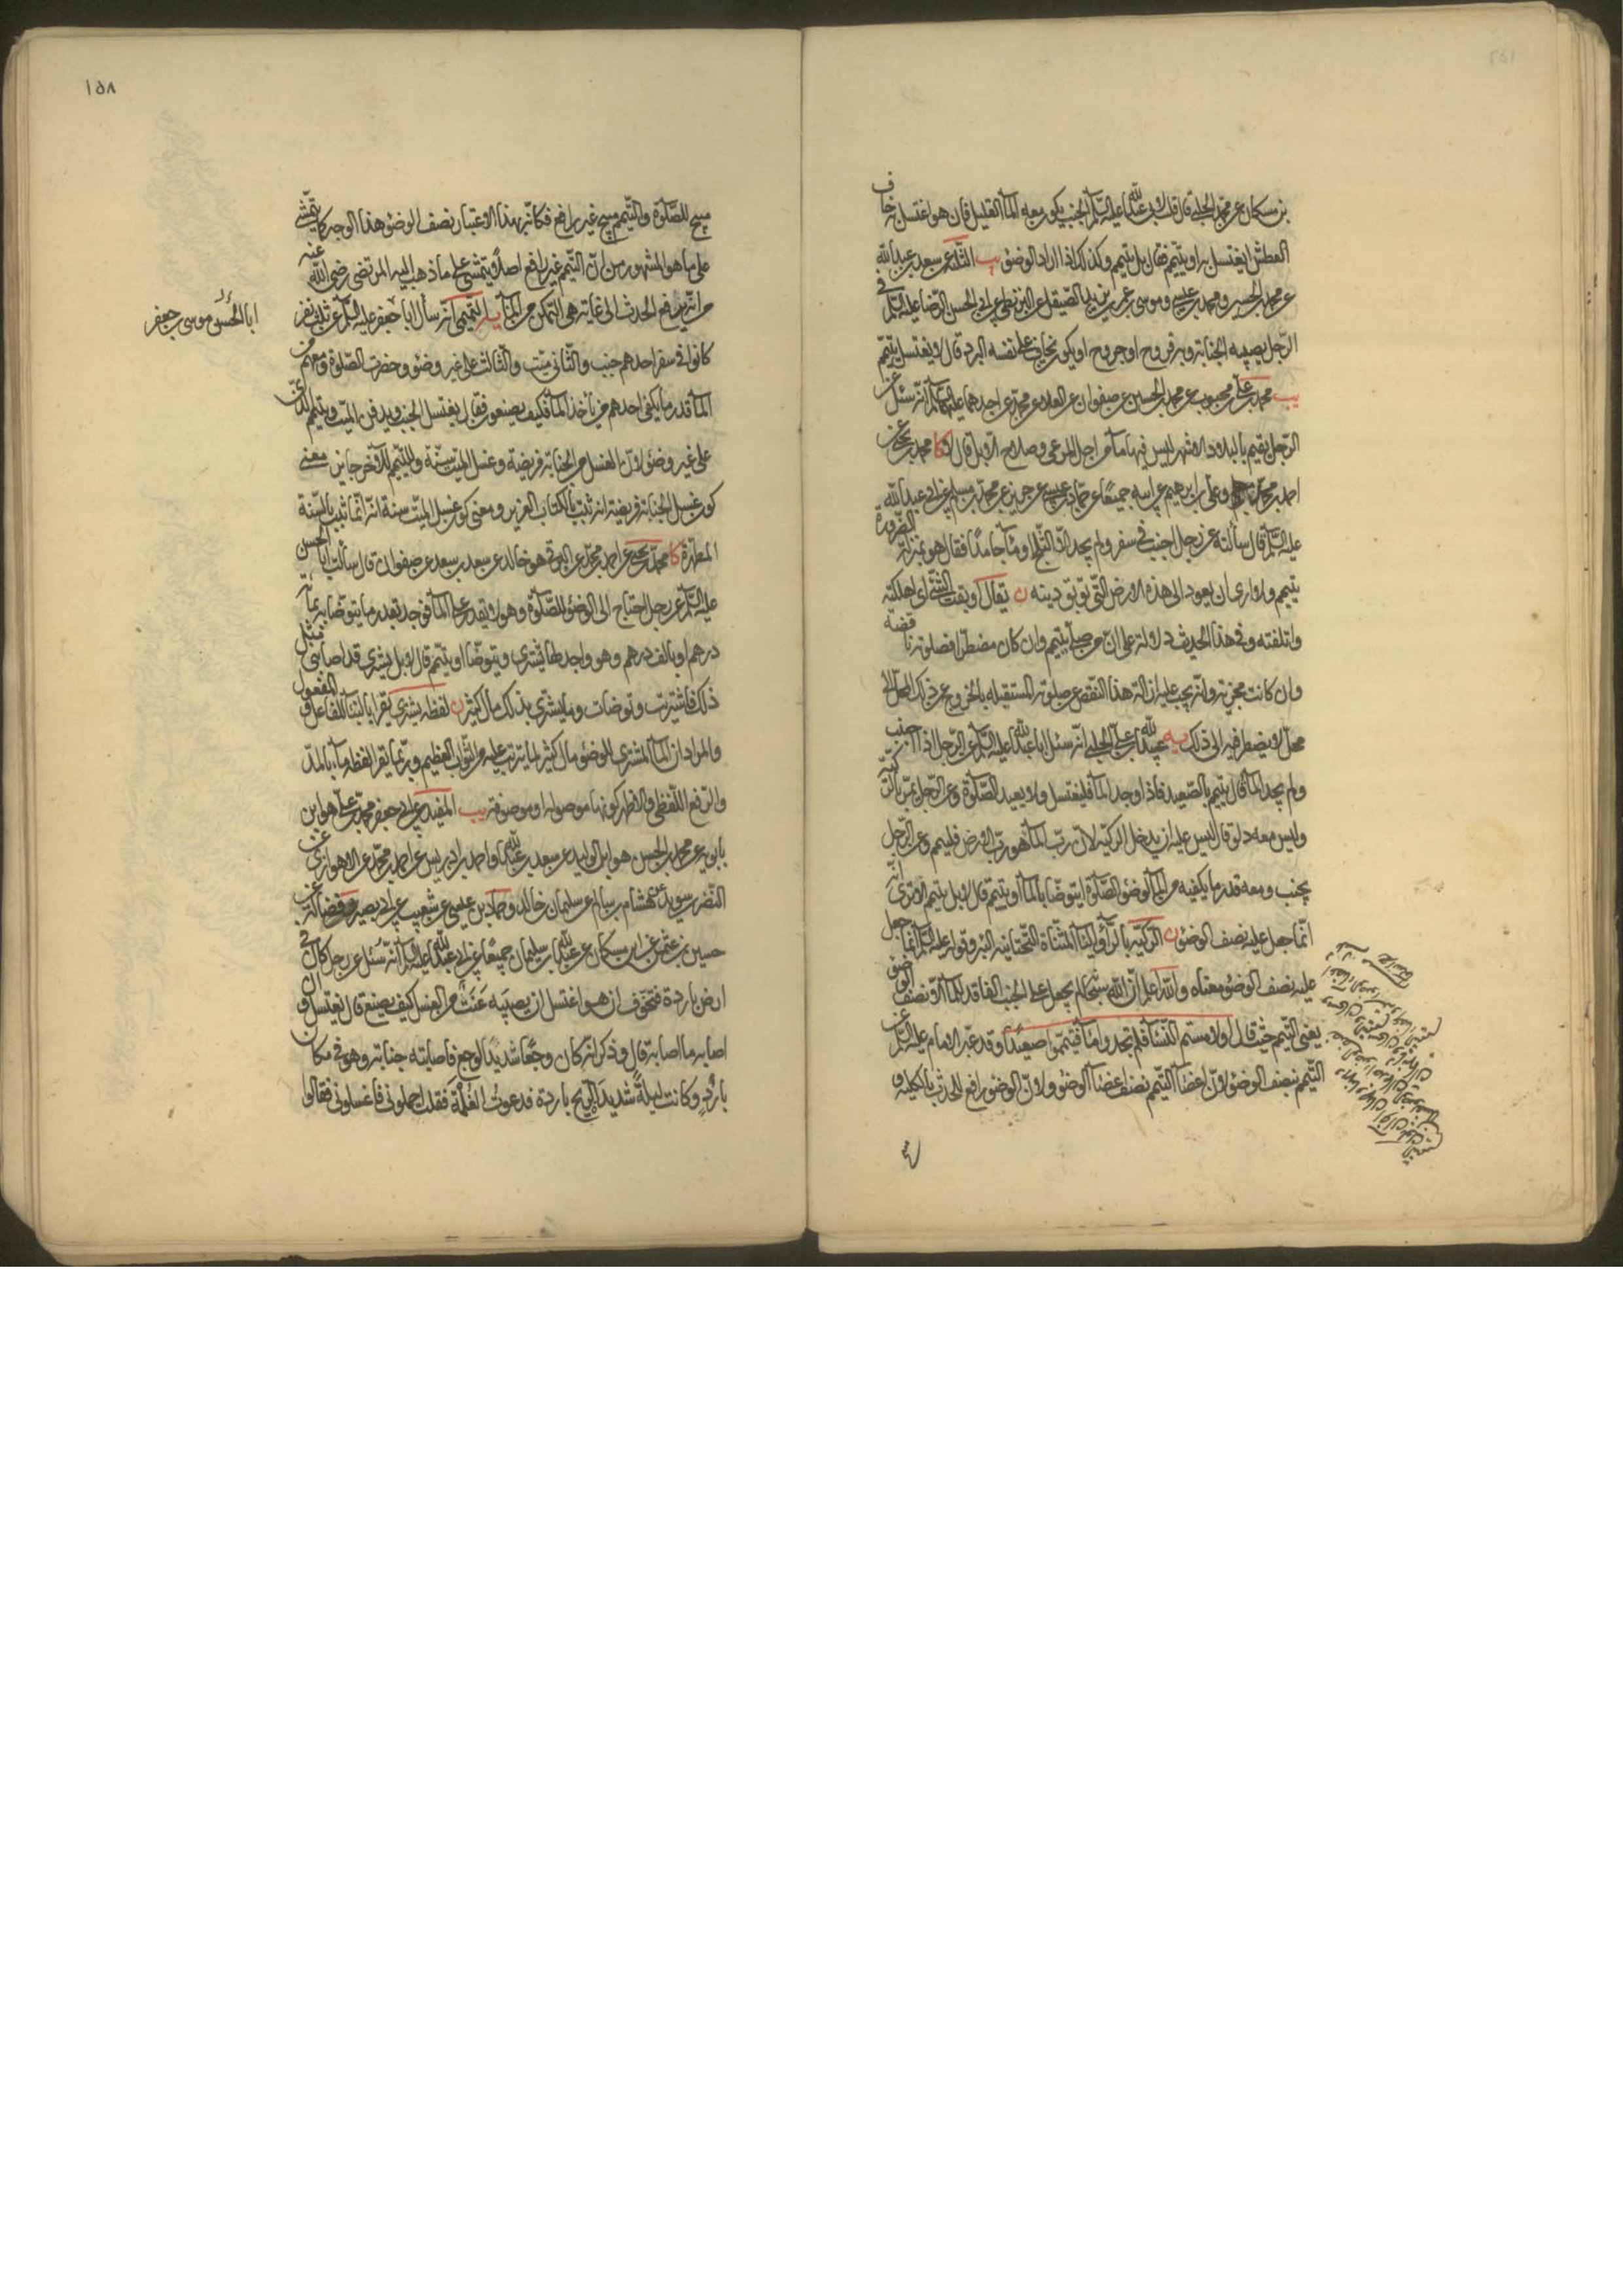 بن مسكان عن محمد الحلبي قال قلت لابي عبدالله عليه السلم الجنب يكون معه الماء القليل فان هو اغتسل به خاف
العطش ايغتسل به او يتيمم فقال بل يتيمم وكذلك اذا اراد الوضوء يب الثلثة عن سعد بن عبدالله
عن محمد بن الحسين ومحمد بن عيسى وموسى بن عمر بن يزيد الصيقل عن البزنطي عن ابي الحسن الرضا عليه السلم في
الرجل يصيبه الجنابة وبه قروح او جروح او يكون يخاف على نفسه البرد قال لا يغتسل يتيمم
يب محمد بن علي بن محبوب عن محمد بن الحسين عن صفوان عن العلاء عن محمد عن احدهما عليهما السلم انه سئل عن
الرجل يقيم بالبلاد الاشهر ليس فيها ماء من اجل المرعى وصلاح الابل قال لا كا محمد بن يحيى عن
احمد بن محمد وعلي بن ابرهيم عن ابيه جميعا عن حماد بن عيسى عن حريز عن محمد بن مسلم عن ابي عبدالله
عليه السلم قال سألته عن رجل اجنب في سفر ولم يجد الا الثلج او ماء جامدا فقال هو بمنزلة الضرورة
يتيمم ولا ارى ان يعود الى هذه الارض التي توبق دينه ن يقال اوبقت الشئ اى اهلكته
واتلفته وفي هذا الحديث دلالة على ان من صلى بتيمم وان كان مضطرا فصلوته ناقصة
وان كانت مجزية وانه يجب عليه ازالة هذا النقص عن صلوته المستقبلة بالخروج عن ذلك المحل الى
محل لا يضطر فيه الى ذلك يه عبيدالله بن علي الحلبي انه سئل ابا عبدالله عليه السلم عن الرجل اذا اجنب
ولم يجد الماء قال يتيمم بالصعيد فاذا وجد الماء فليغتسل ولا يعيد الصلوة وعن الرجل يمر بالركية
وليس معه دلو قال ليس عليه ان يدخل الركية لان رب الماء هو رب الارض فليتيمم وعن الرجل
يجنب ومعه قدر ما يكفيه من الماء لوضوء الصلوة ايتوضأ بالماء او يتيمم قال لا بل يتيمم الا ترى انه
انما جعل عليه نصف الوضوء ن الركية بالراء والياء المثناة التحتانية البئر وقوله عليه السلم انما جعل
عليه نصف الوضوء معناه والله اعلم ان الله سبحانه لم يجعل على الجنب الفاقد للماء الا نصف الوضوء
يعني التيمم حيث قال او لامستم النساء فلم تجدوا ماء فتيمموا صعيدا وقد عبر الامام عليه السلم عن
التيمم بنصف الوضوء لان اعضاء التيمم نصف اعضاء الوضوء ولان الوضوء رافع للحدث بالكلية و
١٥٨
مبيح للصلوة والتيمم مبيح غير رافع فكانه بهذا الاعتبار نصف الوضوء هذا الوجه كما يتمشى
على ما هو المشهور من ان التيمم غير رافع اصلا يتمشى على ما ذهب اليه المرتضى رضي الله عنه
من انه يرفع الحدث الى غاية هى التمكن من الماء يه التميمي انه سأل ابا جعفر عليه السلم عن ثلثة نفر
ابا الحسن موسى بن جعفر
كانوا في سفر احدهم جنب والثاني ميت والثالث على غير وضوء وحضرت الصلوة ومعهم من
الماء قدر ما يكفى احدهم من يأخذ الماء وكيف يصنعون فقال يغتسل الجنب ويدفن الميت ويتيمم الذى
على غير وضوء لان الغسل من الجنابة فريضة وغسل الميت سنة والتيمم للآخر جايز ن معنى
كون غسل الجنابة فريضة انه ثبت بالكتاب العزيز ومعنى كون غسل الميت سنة انه انما ثبت بالسنة
المطهرة كا محمد بن يحيى عن احمد بن محمد عن البرقي هو خالد عن سعد بن سعد عن صفوان قال سألت ابا الحسن
عليه السلم عن رجل احتاج الى الوضوء للصلوة وهو لا يقدر على الماء فوجد بقدر ما يتوضأ به بمائة
درهم او بالف درهم وهو واجد لها يشترى ويتوضأ او يتيمم قال لا بل يشترى قد اصابني مثل
ذلك فاشتريت وتوضأت وما يشترى بذلك مال كثير ن لفظة يشترى يقرأ بالبناء للفاعل والمفعول
والمراد ان الماء المشترى للوضوء مال كثير لما يترتب عليه من الثواب العظيم وربما يقرأ لفظة ماء بالمد
والرفع اللفظي والاظهر كونها موصولة او موصوفة يب المفيد عن ابي جعفر محمد بن علي هو ابن
بابويه عن محمد بن الحسن هو ابن الوليد عن سعد بن عبدالله واحمد بن ادريس عن احمد بن محمد عن الاهوازي عن
النضر بن سويد عن هشام بن سالم عن سليمان بن خالد وحماد بن عيسى عن شعيب عن ابي بصير وفضالة عن
حسين بن عثمن عن ابن مسكان عن عبدالله بن سليمان جميعا عن ابي عبدالله عليه السلم انه سئل عن رجل كان في
ارض باردة فتخوف ان هو اغتسل ان يصيبه عنت من الغسل كيف يصنع قال يغتسل وان
اصابه ما اصابه قال وذكر انه كان وجعا شديد الوجع فاصابته جنابة وهو في مكان
بارد وكانت ليلة شديدة الريح باردة فدعوت الغلمة فقلت احملوني فاغسلوني فقالوا